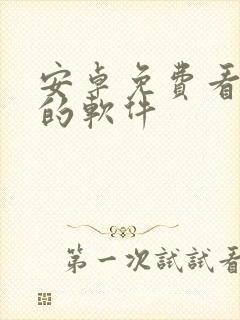 安卓免費看
的軟件
第一次試試看